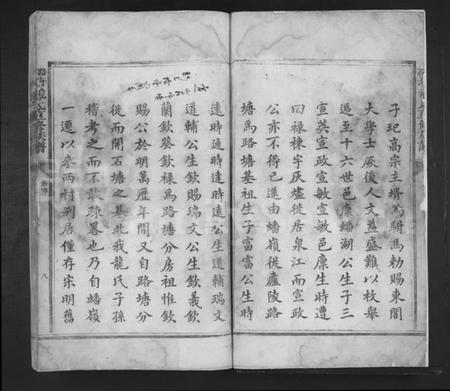 子玘高宗主壻爲駙馬勅賜東閣
大學士厥後人文蔚盛難以枚舉
逓至十六世邑廩蟠湖公生子三
宣英宣政宣敏宣敏邑廩生時遭
回祿棟宇灰燼徙居泉江而宣政
公亦不得已遂由蟠嶺徙廬陵路
塘爲路塘基祖生子富富公生時
遠時適時達時遠公生道輔瑞文
道輔公生欽賜瑞文公生欽羲欽
蘭欽葵欽祿爲路塘分房祖惟欽
賜公於明萬歷年間又自路塘分
徙而開石塘之基此我龍氏子孫
稽考之而不敢疎畧也乃自蟠嶺
一遷以來兩村別居僅存宋明舊
八